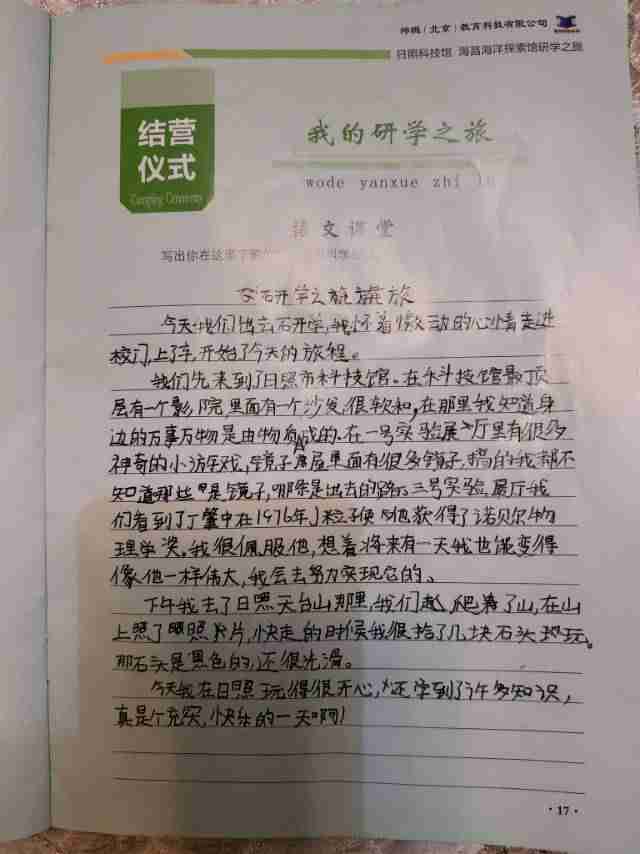 师甄（北京）教育科技有限公司
日照科技馆 海昌海洋探索馆研学之旅
结营
仪式
Camping Ceremony
我的研学之旅
wode yanxue zhi lu
语文课堂
写出你在这里了解
研学之旅 旅
今天我们出去研学,我怀着激动的心情走进
校门,上了车,开始了今天的旅程。
我们先来到了日照市科技馆。在科技馆最顶
层有一个影院里面有一个沙发很软和,在那里我知道身
边的万事万物是由物质成的.在一号实验展厅里有很多
神奇的小游戏,镜子屋里面有很多镜子,搞的我都不
知道那些是镜子,哪条是出去的路。三号实验展厅我
们看到了丁肇中在1976年J粒子使他获得了诺贝尔物
理学奖。我很佩服他,想着将来有一天我也能变得
像他一样伟大,我会去努力实现它的。
下午我去了日照天台山那里,我们爬着了山,在山
上照了照片,快走的时候我很拾了几块石头玩。
那石头是黑色的,还很光滑。
今天我在日照玩得很开心,还学到了许多知识,
真是个充实,快乐的一天啊!
·17·